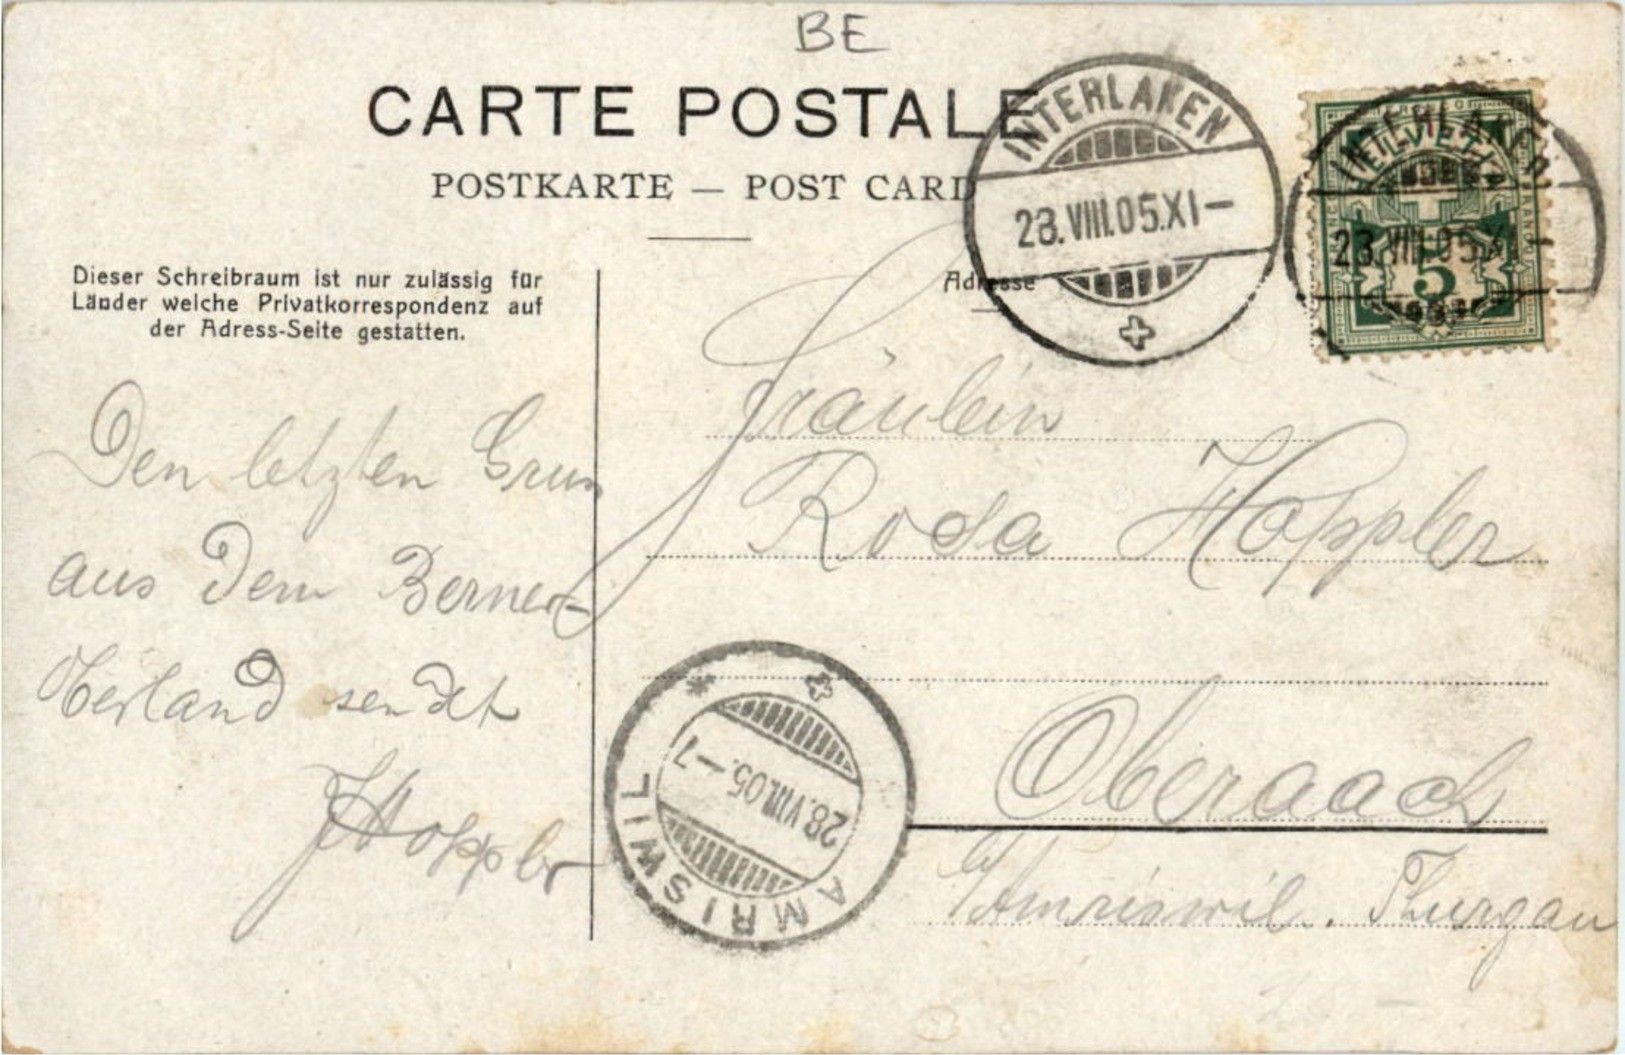 BE
CARTE POSTALE
POSTKARTE — POST CARD
INTERLAKEN
28.VIII.05.XI–
INTERLAKEN
28.VIII.05.XI–
HELVETIA
5
Dieser Schreibraum ist nur zulässig für
Länder welche Privatkorrespondenz auf
der Adress-Seite gestatten.
Adresse
Den letzten Gruss
aus dem Berner-
Oberland sendet
J Hoppler
Fräulein
Rosa Hoppler
Oberaach
b/Amriswil. Thurgau
AMRISWIL
28.VIII.05.–7